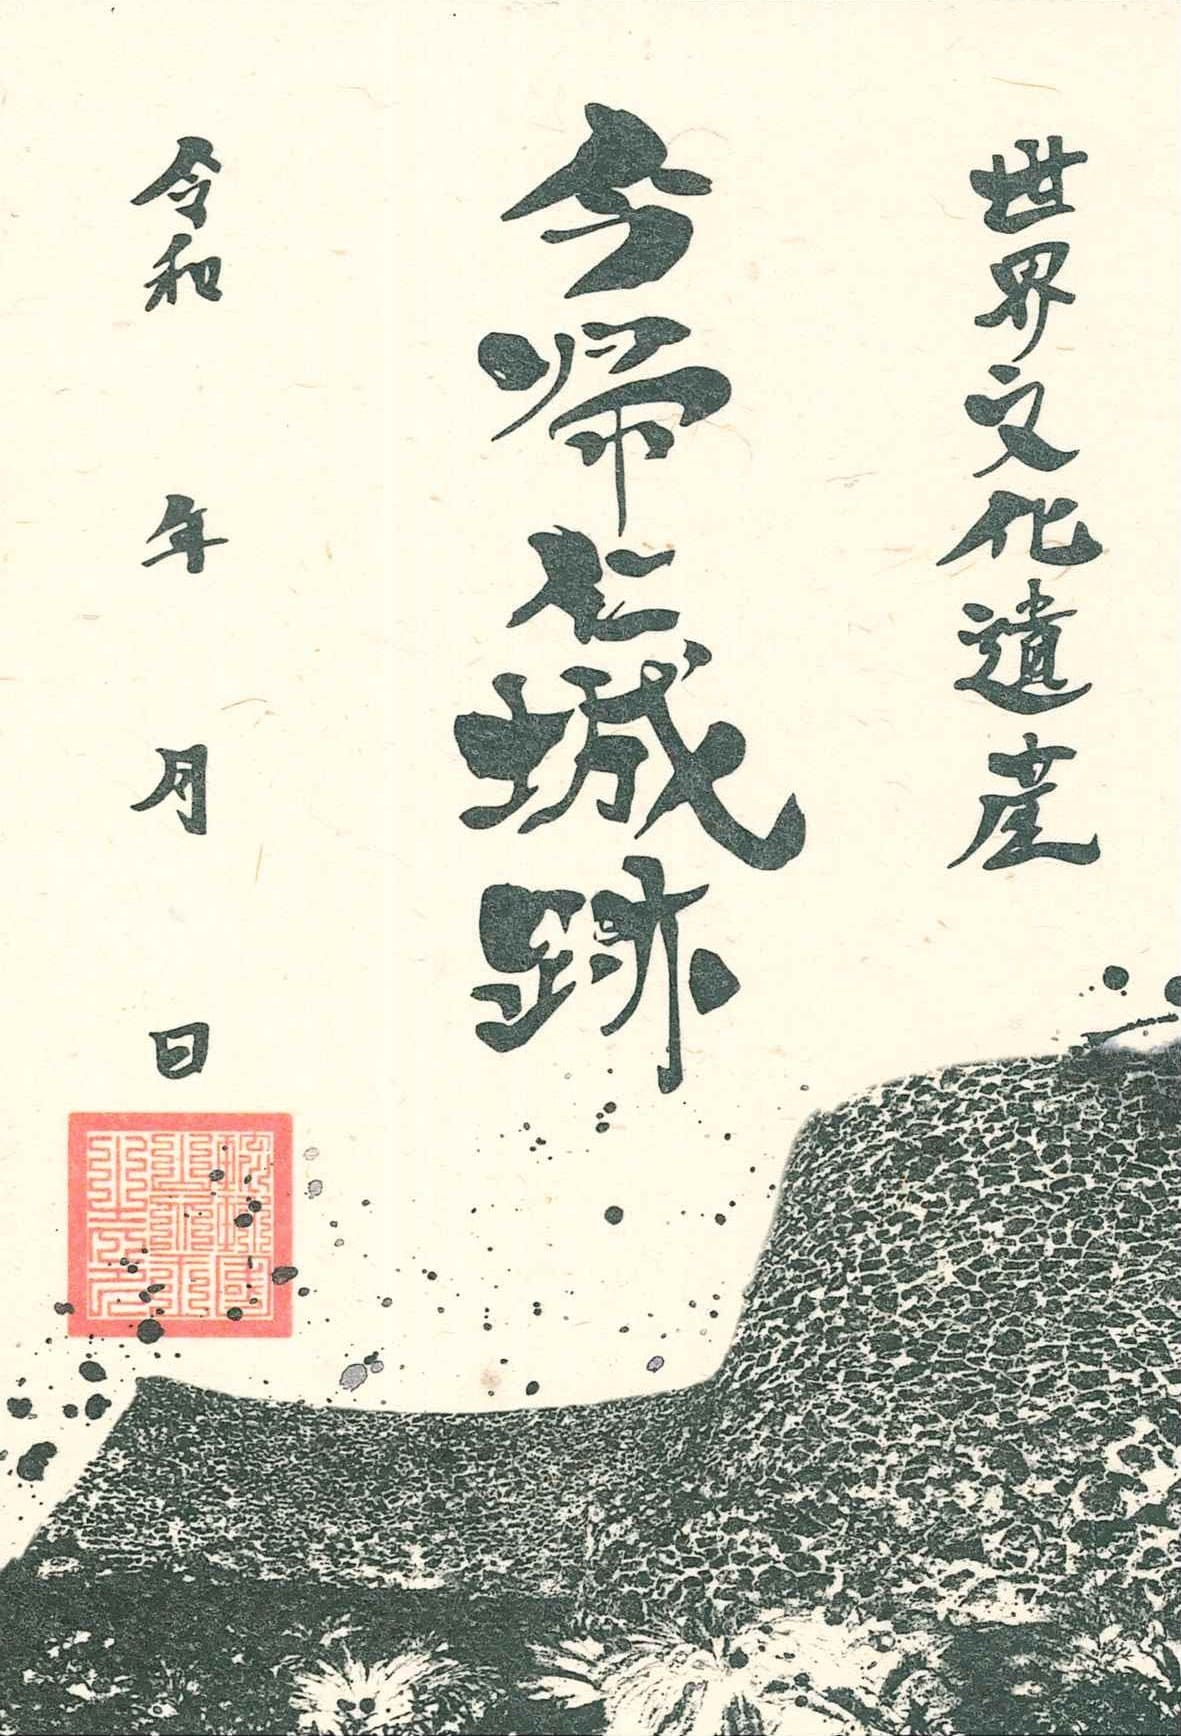 世界文化遺産
今帰仁城跡
令和 年 月 日